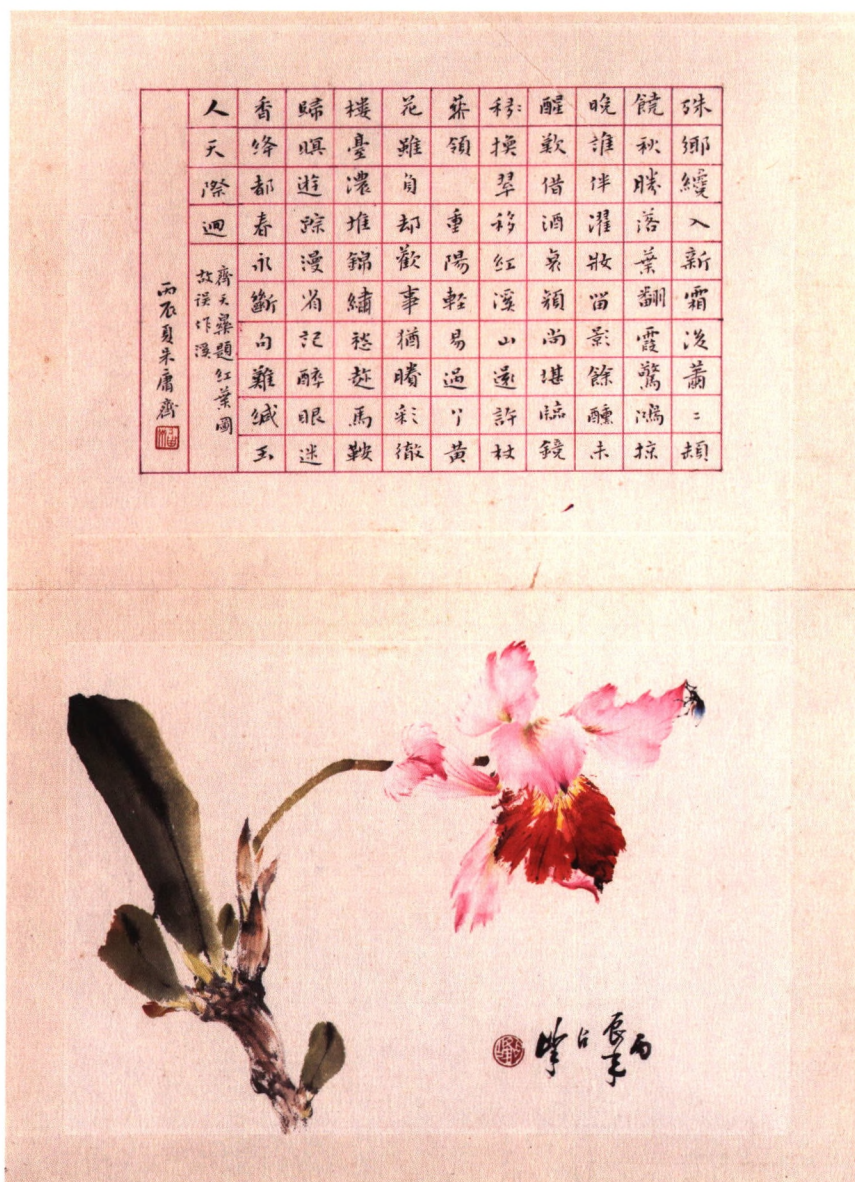 殊鄉纔入新霜後蕭〻頓
饒秋勝落葉翻霞驚鴻掠
晚誰伴濯妝留影餘醺未
醒歎借酒衰顏尚堪臨鏡
移換翠移紅溪山還許杖
藜領 重陽輕易過了黃
花雖自却歡事猶勝彩徹
樓臺濃堆錦繡愁趁馬鞍
歸暝遊踪漫省記醉眼迷
香絳都春永斷句難緘玉
人天際迥
齊天樂題紅葉圖
故誤作溪
丙辰夏朱庸齋
丙辰年